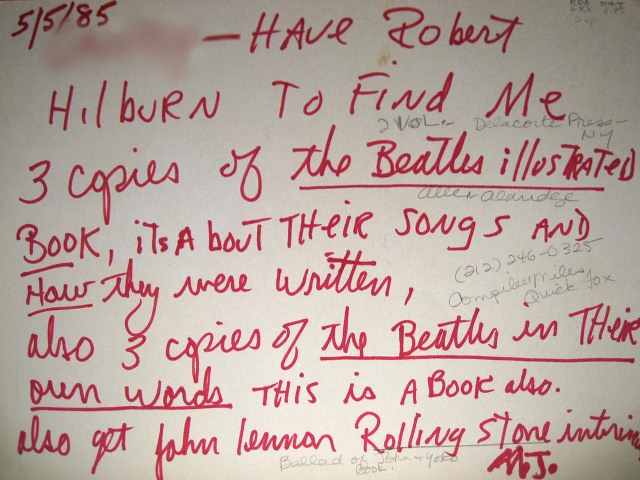 5/5/85
— HAVE Robert
HilbuRN To Find Me
2 VOL. - Delacorte Press -
NY
3 copies of the Beatles illustRATED
allen aldridge
BOOK, its A bout THEiR SONGS AND
(212) 246-0325
HOW they were written,
Compiler Miles
Quick Fox
also 3 copies of the Beatles in THEiR
own words THis is A BOOK also.
also get John lennon Rolling Stone
Ballad of John & Yoko
BOOK.
M.J.